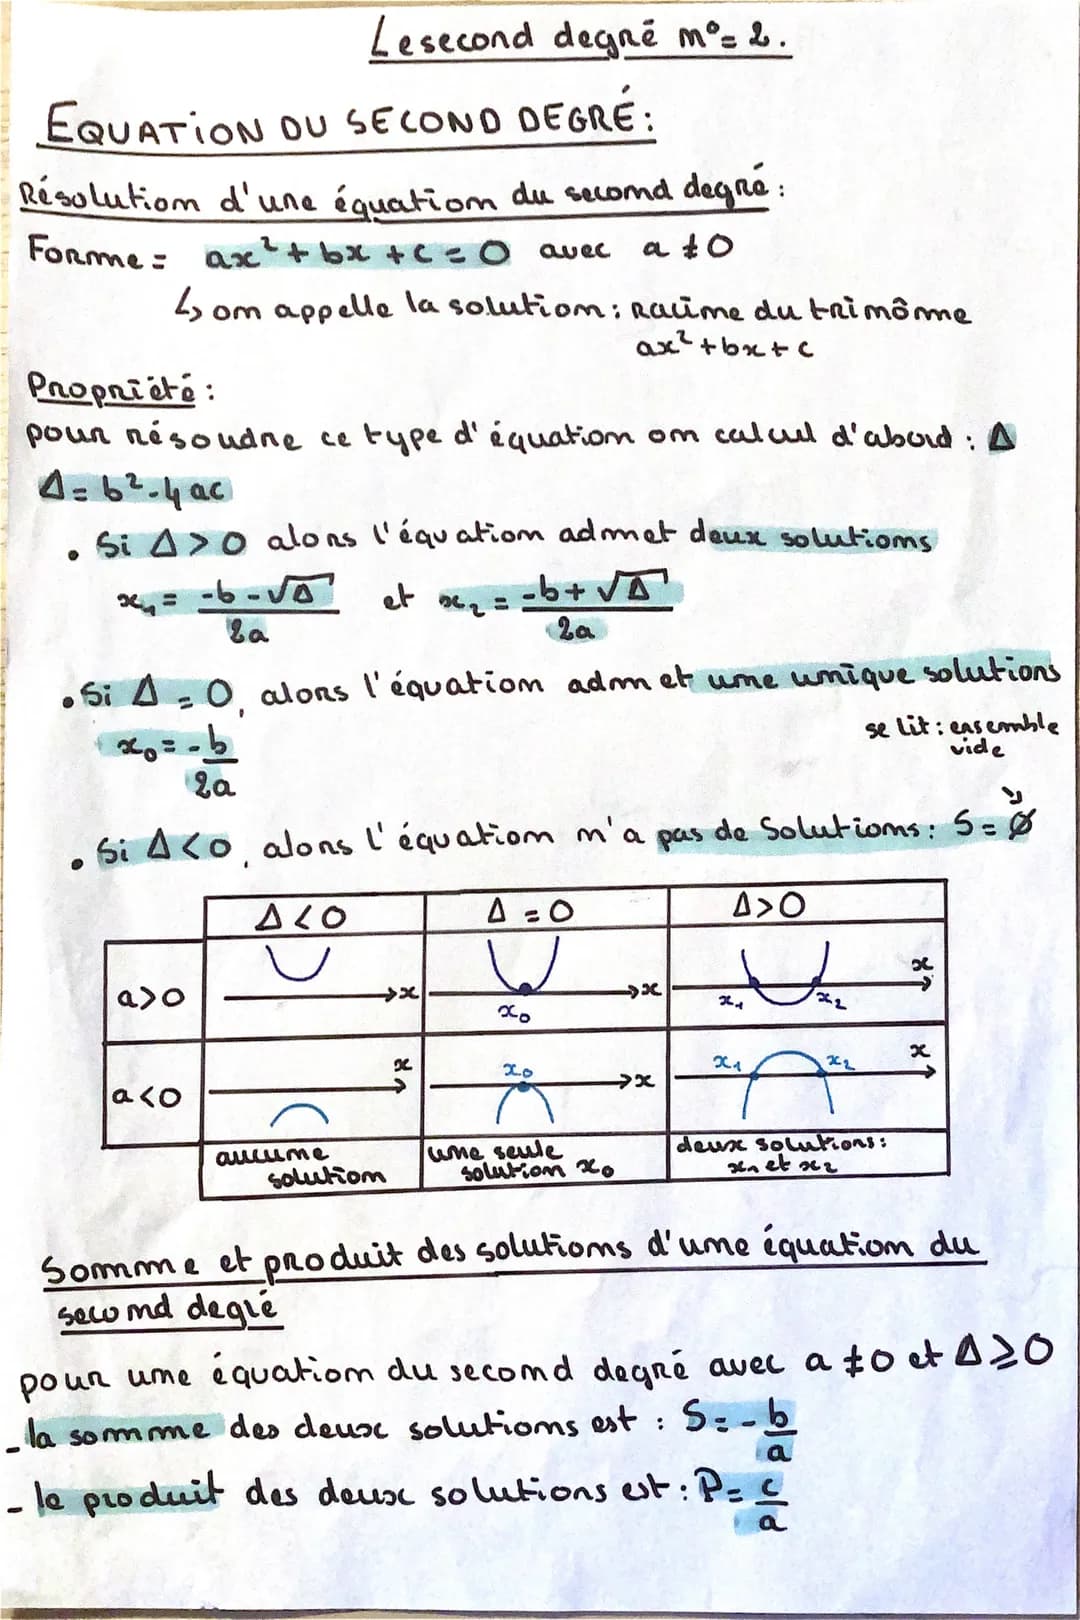 Le second degré n°= 2.
EQUATION DU SECOND DEGRÉ:
Résolution d'une équation du second degré :
Forme = ax² + bx + c = 0 avec a ≠ 0
↳ on appelle la solution : racine du trinôme
ax² + bx + c
Propriété :
pour résoudre ce type d'équation on calcul d'abord : Δ
Δ = b² - 4ac
• Si Δ > 0 alons l'équation admet deux solutions
x₁ = (-b - √Δ) / 2a et x₂ = (-b + √Δ) / 2a
• Si Δ = 0, alons l'équation admet une unique solutions
x₀ = -b / 2a
se lit : ensemble
vide
• Si Δ < 0, alons l'équation n'a pas de Solutions : S = Ø
Δ < 0 Δ = 0 Δ > 0
a > 0 x x₀ x x₁ x₂ x
a < 0 x x₀ x x₁ x₂ x
aucune
solution
une seule
solution x₀
deux solutions :
x₁ et x₂
Somme et produit des solutions d'une équation du
second degré
pour une équation du second degré avec a ≠ 0 et Δ ⩾ 0
- la somme des deux solutions est : S = - b/a
- le produit des deux solutions est : P = c/a